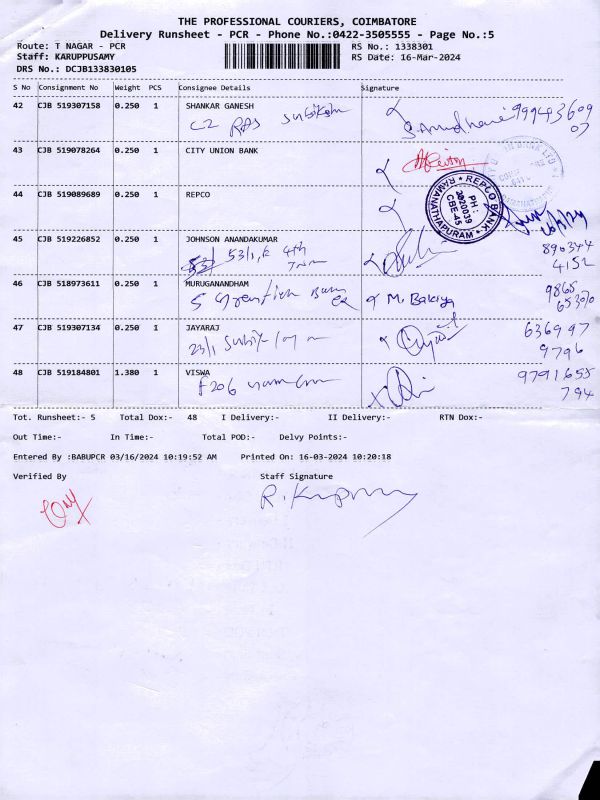 THE PROFESSIONAL COURIERS, COIMBATORE
Delivery Runsheet - PCR - Phone No.:0422-3505555 - Page No.:5
Route: T NAGAR - PCR
RS No.: 1338301
Staff: KARUPPUSAMY
RS Date: 16-Mar-2024
DRS No.: DCJB133830105
S No Consignment No Weight PCS Consignee Details Signature
42 CJB 519307158 0.250 1 SHANKAR GANESH
C2
43 CJB 519078264 0.250 1 CITY UNION BANK
44 CJB 519089689 0.250 1 REPCO
REPCO BANK
PH :
2020039
CBE-45
RAMANATHAPURAM
45 CJB 519226852 0.250 1 JOHNSON ANANDAKUMAR
53/1, 4th
890344
4152
46 CJB 518973611 0.250 1 MURUGANANDHAM
5
M. Bakiya
9865
47 CJB 519307134 0.250 1 JAYARAJ
23/1
636997
9796
48 CJB 519184801 1.380 1 VISWA
F206
9791655
794
Tot. Runsheet:- 5 Total Dox:- 48 I Delivery:- II Delivery:- RTN Dox:-
Out Time:- In Time:- Total POD:- Delvy Points:-
Entered By :BABUPCR 03/16/2024 10:19:52 AM Printed On: 16-03-2024 10:20:18
Verified By Staff Signature